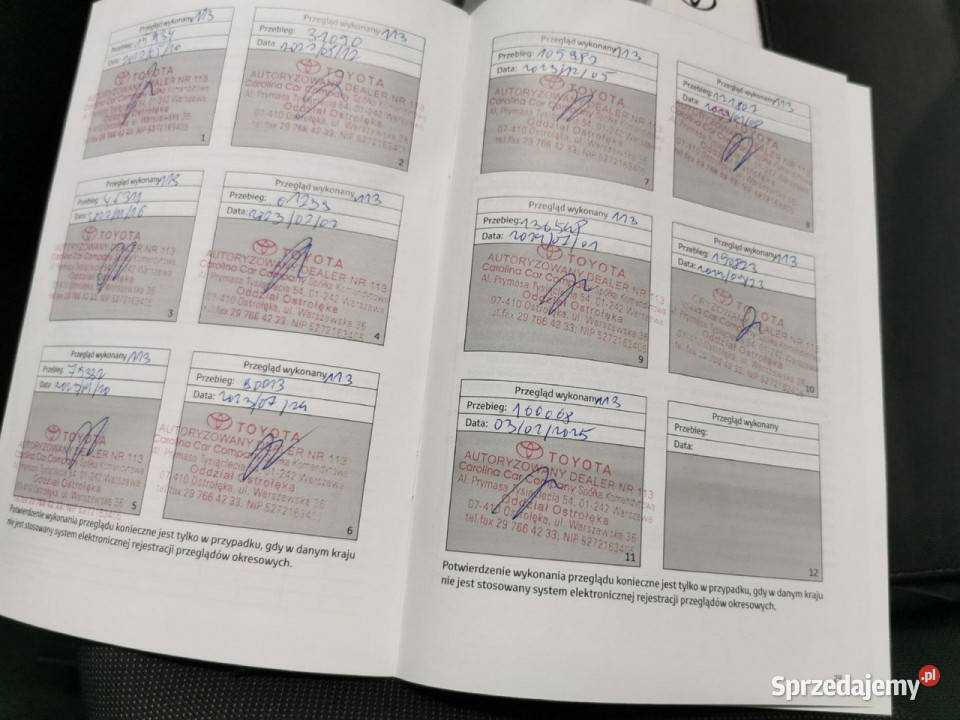 Przegląd wykonany 113
Przebieg:
Data:
TOYOTA
AUTORYZOWANY DEALER NR 113
Carolina Car Company Spółka Komandytowa
Oddział Ostrołęka
1
Przegląd wykonany 113
Przebieg: 31090
Data:
TOYOTA
AUTORYZOWANY DEALER NR 113
Carolina Car Company Spółka Komandytowa
Al. Prymasa Tysiąclecia 54, 01-242 Warszawa
Oddział Ostrołęka
07-410 Ostrołęka, ul. Warszawska 36
tel. fax 29 766 42 33, NIP 5272163405
2
Przegląd wykonany 113
Przebieg:
Data:
TOYOTA
AUTORYZOWANY DEALER NR 113
3
Przegląd wykonany 113
Przebieg: 61233
Data: 2023/02/02
TOYOTA
AUTORYZOWANY DEALER NR 113
Carolina Car Company Spółka Komandytowa
Al. Prymasa Tysiąclecia 54, 01-242 Warszawa
Oddział Ostrołęka
07-410 Ostrołęka, ul. Warszawska 36
tel. fax 29 766 42 33, NIP 5272163405
4
Przegląd wykonany 113
Przebieg:
Data:
TOYOTA
AUTORYZOWANY DEALER NR 113
5
Przegląd wykonany 113
Przebieg: 90013
Data: 2023/07/24
TOYOTA
AUTORYZOWANY DEALER NR 113
Carolina Car Company Spółka Komandytowa
Al. Prymasa Tysiąclecia 54, 01-242 Warszawa
Oddział Ostrołęka
07-410 Ostrołęka, ul. Warszawska 36
tel. fax 29 766 42 33, NIP 5272163405
6
Potwierdzenie wykonania przeglądu konieczne jest tylko w przypadku, gdy w danym kraju
nie jest stosowany system elektronicznej rejestracji przeglądów okresowych.
Przegląd wykonany 113
Przebieg: 105982
Data: 2023/12/05
TOYOTA
AUTORYZOWANY DEALER NR 113
Carolina Car Company Spółka Komandytowa
Al. Prymasa Tysiąclecia 54, 01-242 Warszawa
Oddział Ostrołęka
07-410 Ostrołęka, ul. Warszawska 36
tel. fax 29 766 42 33, NIP 5272163405
7
Przegląd wykonany 113
Przebieg: 121802
Data:
8
Przegląd wykonany 113
Przebieg: 136548
Data: 2024/07/01
TOYOTA
AUTORYZOWANY DEALER NR 113
Carolina Car Company Spółka Komandytowa
Al. Prymasa Tysiąclecia 54, 01-242 Warszawa
Oddział Ostrołęka
07-410 Ostrołęka, ul. Warszawska 36
tel. fax 29 766 42 33, NIP 5272163405
9
Przegląd wykonany 113
Przebieg: 150823
Data:
TOYOTA
10
Przegląd wykonany 113
Przebieg: 160068
Data: 03/02/2025
TOYOTA
AUTORYZOWANY DEALER NR 113
Carolina Car Company Spółka Komandytowa
Al. Prymasa Tysiąclecia 54, 01-242 Warszawa
Oddział Ostrołęka
07-410 Ostrołęka, ul. Warszawska 36
tel. fax 29 766 42 33, NIP 5272163405
11
Przegląd wykonany
Przebieg:
Data:
12
Potwierdzenie wykonania przeglądu konieczne jest tylko w przypadku, gdy w danym kraju
nie jest stosowany system elektronicznej rejestracji przeglądów okresowych.
Sprzedajemy.pl